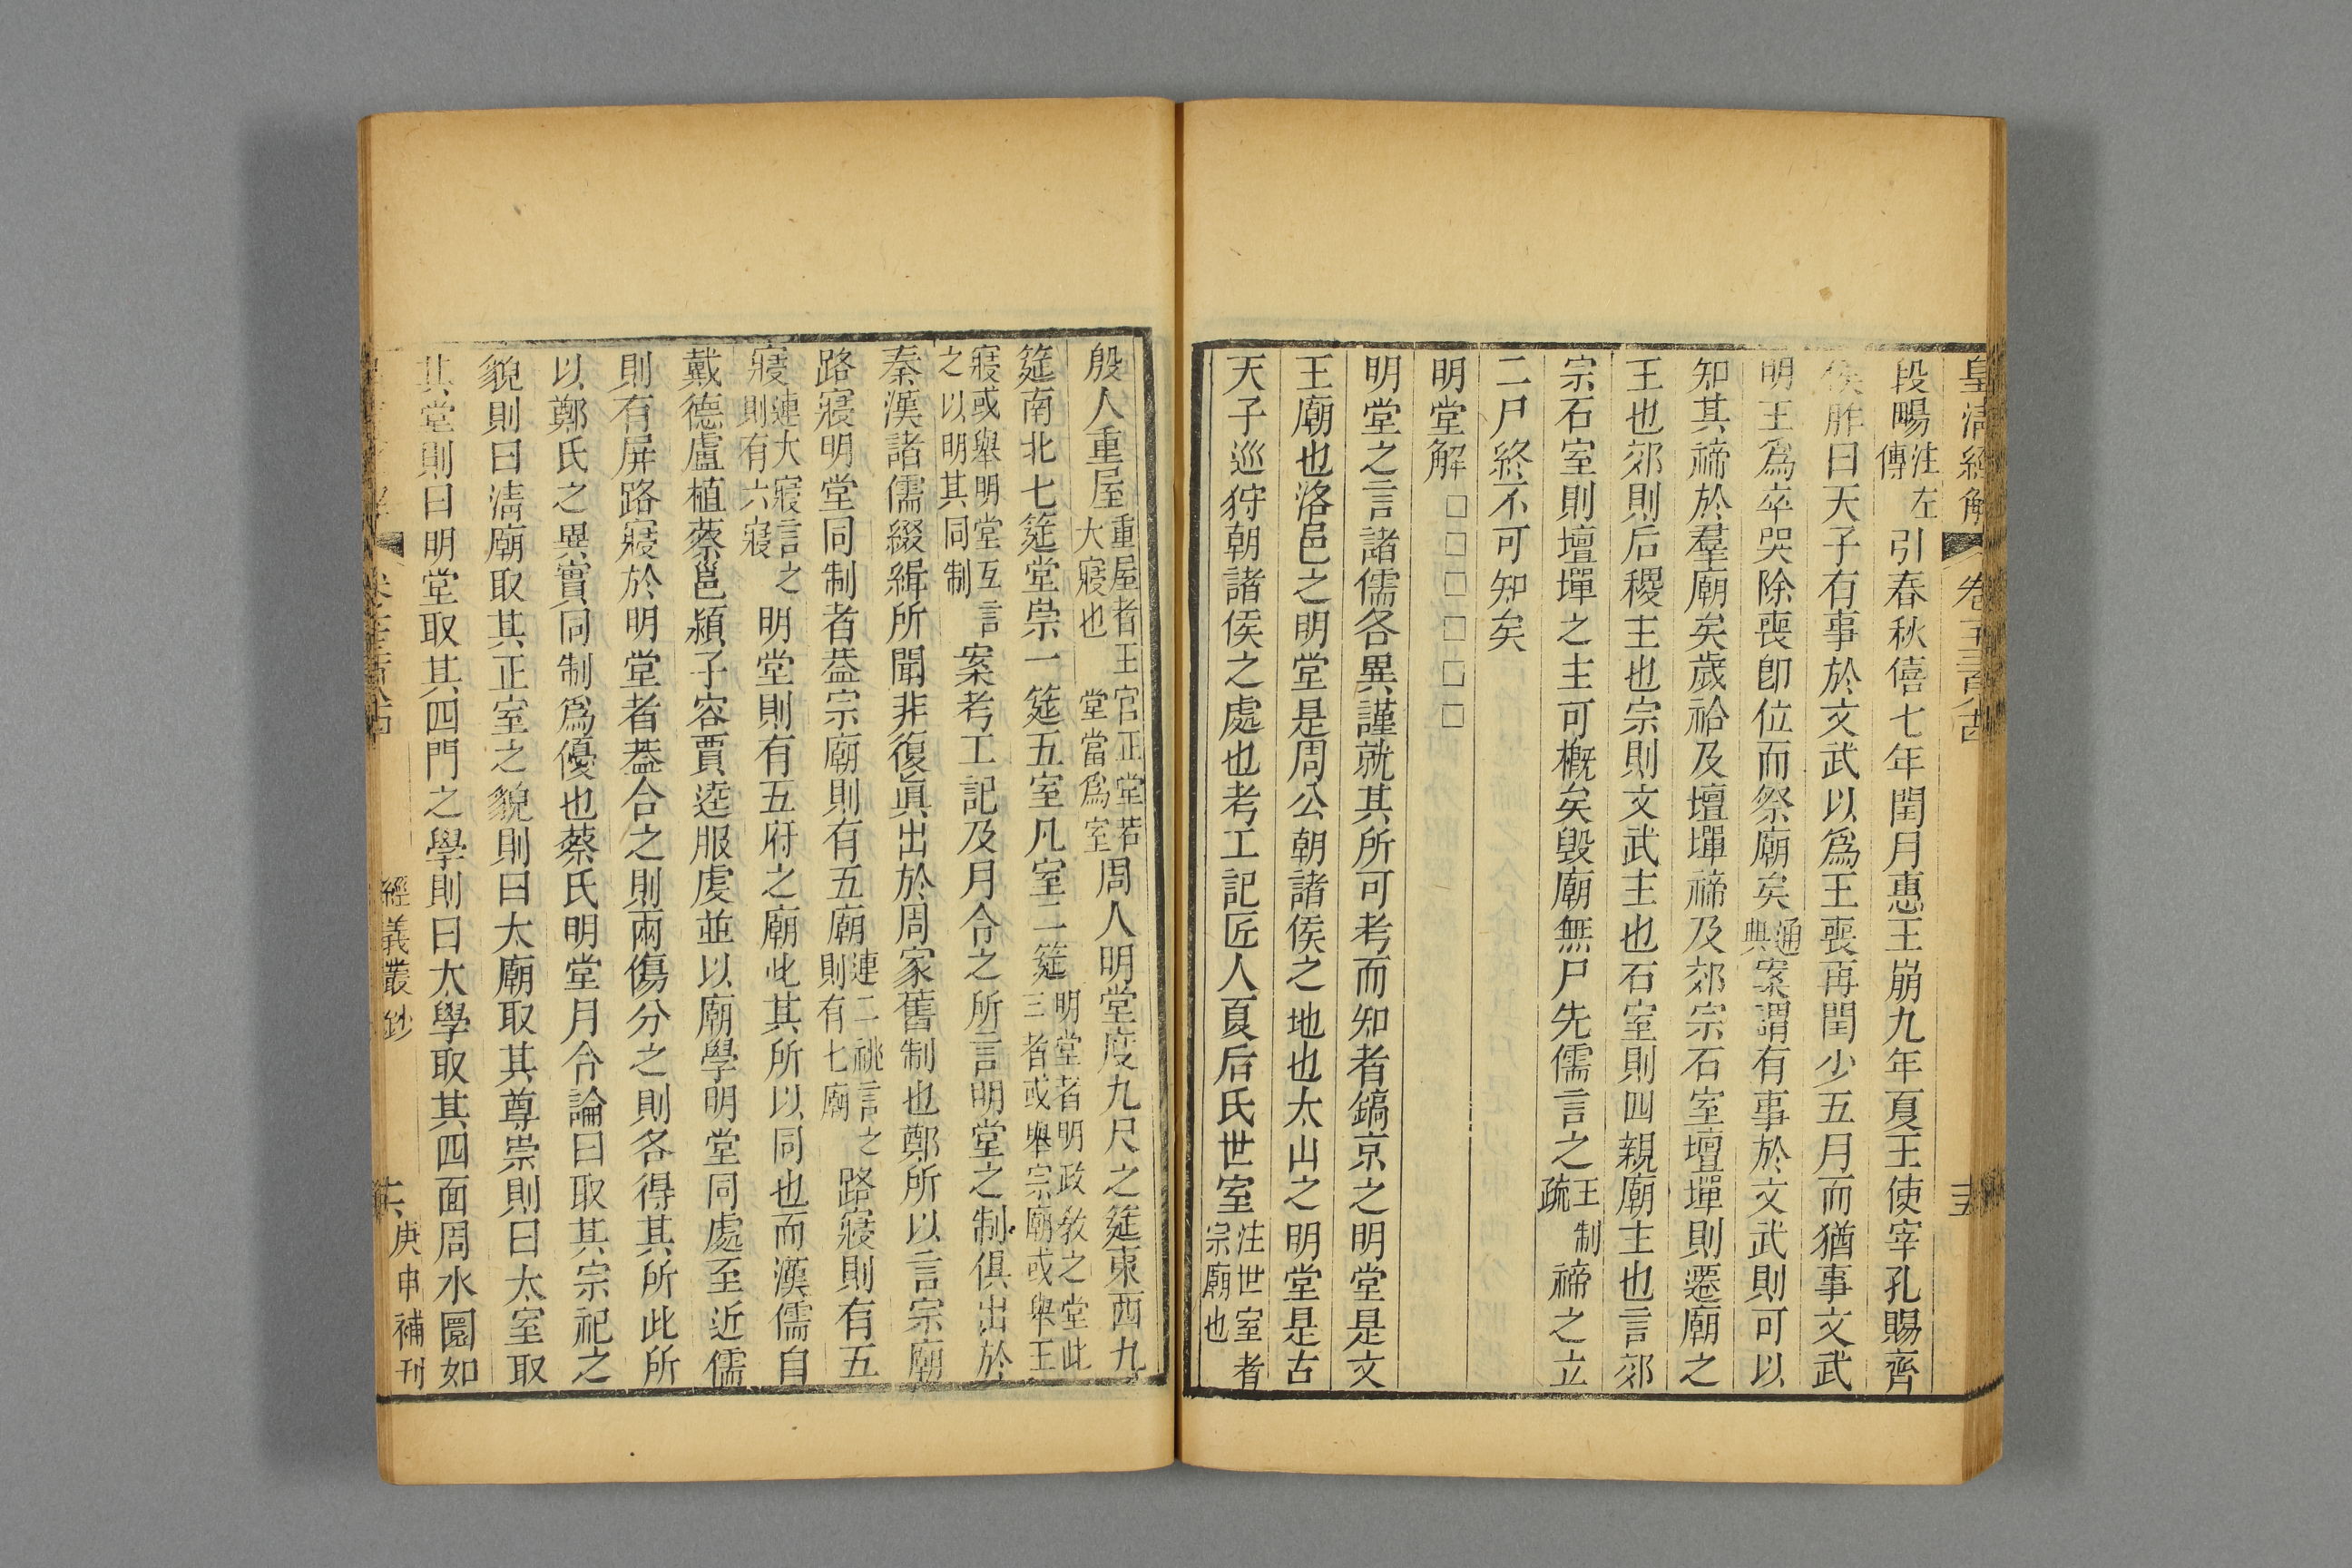 皇清經解 卷 五
段暢注左傳引春秋僖七年閏月惠王崩九年夏王使宰孔賜齊
侯胙曰天子有事於文武以爲王喪再閏少五月而猶事文武
明王爲卒哭除喪卽位而祭廟矣通典案謂有事於文武則可以
知其禘於羣廟矣歲祫及壇墠禘及郊宗石室壇墠則遷廟之
王也郊則后稷主也宗則文武主也石室則四親廟主也言郊
宗石室則壇墠之主可槪矣毀廟無尸先儒言之王制疏禘之立
二尸終不可知矣
明堂解□□□□□□
明堂之言諸儒各異謹就其所可考而知者鎬京之明堂是文
王廟也洛邑之明堂是周公朝諸侯之地也太山之明堂是古
天子巡狩朝諸侯之處也考工記匠人夏后氏世室注世室者宗廟也
殷人重屋重屋者王官正堂若大寢也 堂當爲室周人明堂度九尺之筵東西九
筵南北七筵堂崇一筵五室凡室二筵明堂者明政敎之堂此三者或舉宗廟或舉王
寢或舉明堂互言之以明其同制案考工記及月令之所言明堂之制俱出於
秦漢諸儒綴緝所聞非復眞出於周家舊制也鄭所以言宗廟
路寢明堂同制者葢宗廟則有五廟連二祧言之則有七廟路寢則有五
寢連大寢言之則有六寢明堂則有五府之廟此其所以同也而漢儒自
戴德盧植蔡邕潁子容賈逵服虔並以廟學明堂同處至近儒
則有屏路寢於明堂者葢合之則兩傷分之則各得其所此所
以鄭氏之異實同制爲優也蔡氏明堂月令論曰取其宗祀之
貌則曰淸廟取其正室之貌則曰太廟取其尊崇則曰太室取
其堂則曰明堂取其四門之學則曰大學取其四面周水圜如
經義叢鈔 庚申補刊